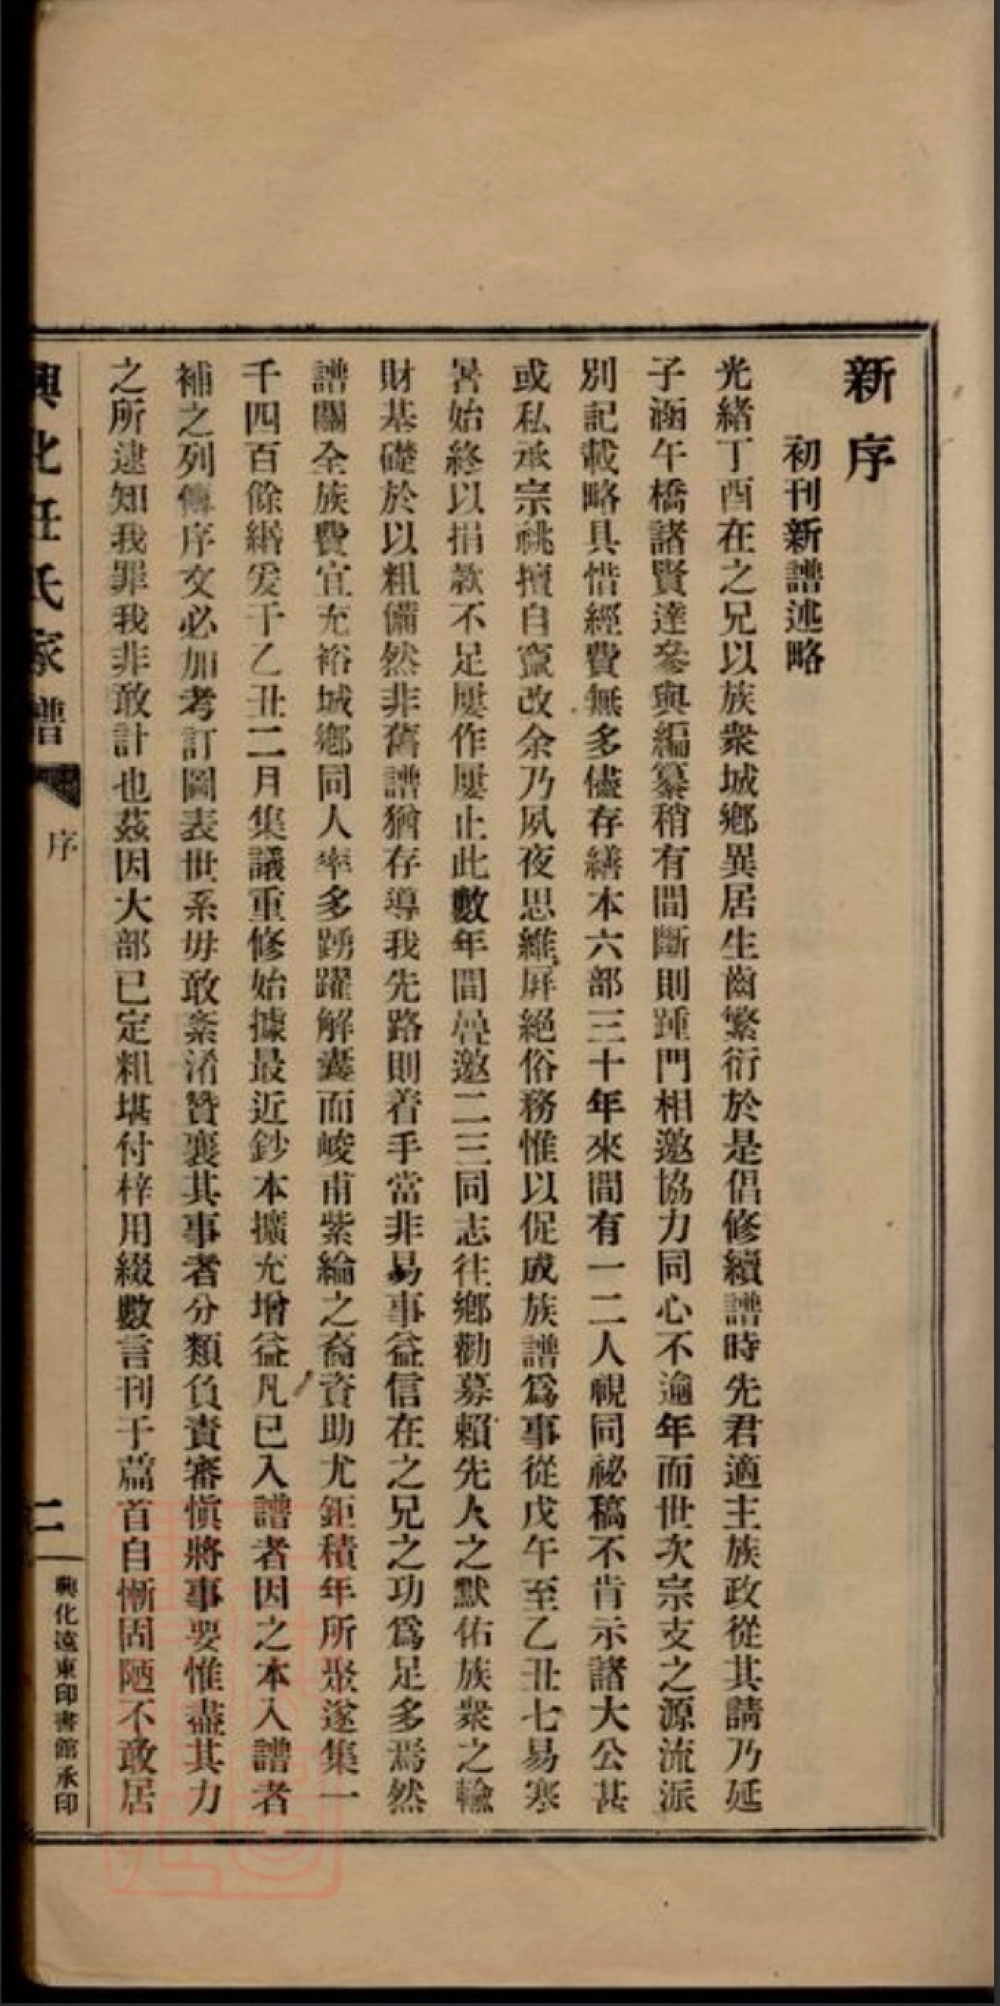 新序
初刊新譜述略
光緒丁酉在之兄以族衆城鄉異居生齒繁衍於是倡修續譜時先君適主族政從其請乃延
子涵午橋諸賢達參與編纂稍有間斷則踵門相邀協力同心不逾年而世次宗支之源流派
別記載略具惜經費無多僅存繕本六部三十年來間有一二人視同祕稿不肯示諸大公甚
或私承宗祧擅自竄改余乃夙夜思維屏絕俗務惟以促成族譜爲事從戊午至乙丑七易寒
暑始終以捐款不足屢作屢止此數年間疊邀二三同志往鄉勸募賴先人之默佑族衆之輸
財基礎於以粗備然非舊譜猶存導我先路則着手當非易事益信在之兄之功爲足多焉然
譜關全族費宜充裕城鄉同人率多踴躍解囊而峻甫紫綸之裔資助尤鉅積年所聚遂集一
千四百餘緡爰于乙丑二月集議重修始據最近鈔本擴充增益凡已入譜者因之本入譜者
補之列傳序文必加考訂圖表世系毋敢紊淆贊襄其事者分類負責審愼將事要惟盡其力
之所逮知我罪我非敢計也茲因大部已定粗堪付梓用綴數言刊于萹首自慚固陋不敢居
興化任氏家譜
序
二
興化遠東印書館承印